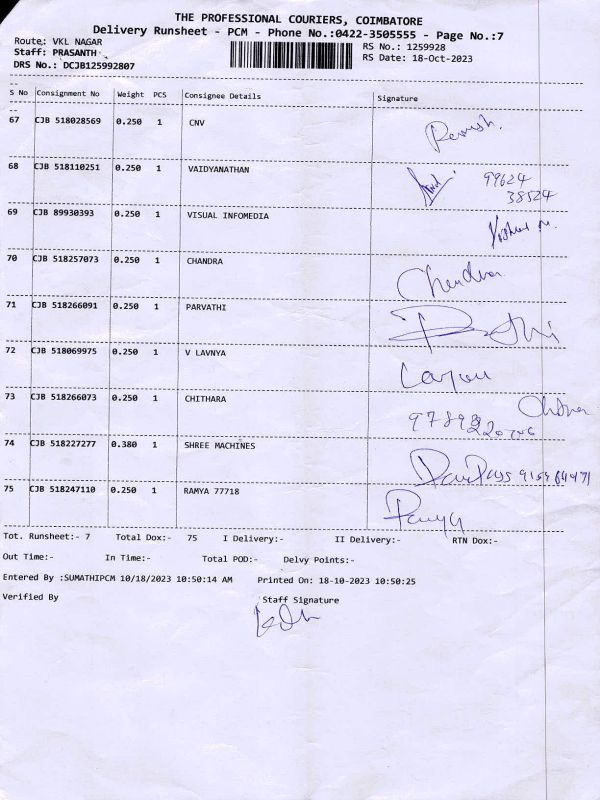 THE PROFESSIONAL COURIERS, COIMBATORE
Delivery Runsheet - PCM - Phone No.:0422-3505555 - Page No.:7
Route: VKL NAGAR
RS No.: 1259928
Staff: PRASANTH
RS Date: 18-Oct-2023
DRS No.: DCJB125992807
S No Consignment No Weight PCS Consignee Details Signature
67 CJB 518028569 0.250 1 CNV
68 CJB 518110251 0.250 1 VAIDYANATHAN 99624
38524
69 CJB 89930393 0.250 1 VISUAL INFOMEDIA
70 CJB 518257073 0.250 1 CHANDRA Chandra
71 CJB 518266091 0.250 1 PARVATHI
72 CJB 518069975 0.250 1 V LAVNYA
73 CJB 518266073 0.250 1 CHITHARA
74 CJB 518227277 0.380 1 SHREE MACHINES
75 CJB 518247110 0.250 1 RAMYA 77718 Ramya
Tot. Runsheet:- 7 Total Dox:- 75 I Delivery:- II Delivery:- RTN Dox:-
Out Time:- In Time:- Total POD:- Delvy Points:-
Entered By :SUMATHIPCM 10/18/2023 10:50:14 AM Printed On: 18-10-2023 10:50:25
Verified By Staff Signature